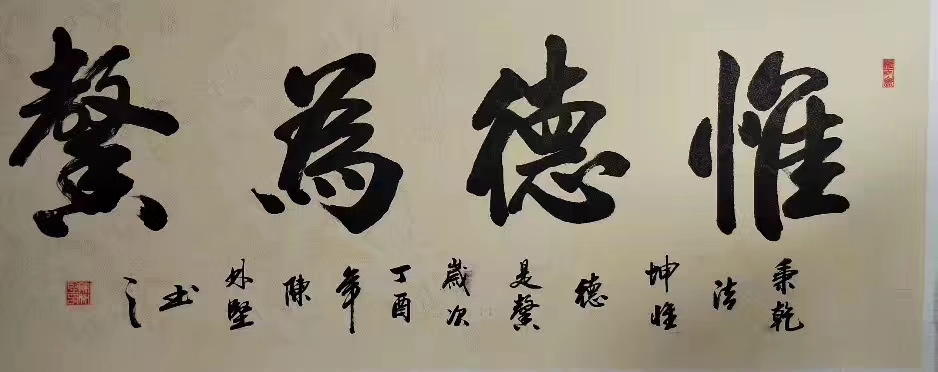 惟德為馨
秉乾法坤惟德是馨歲次丁酉年陳外堅书之